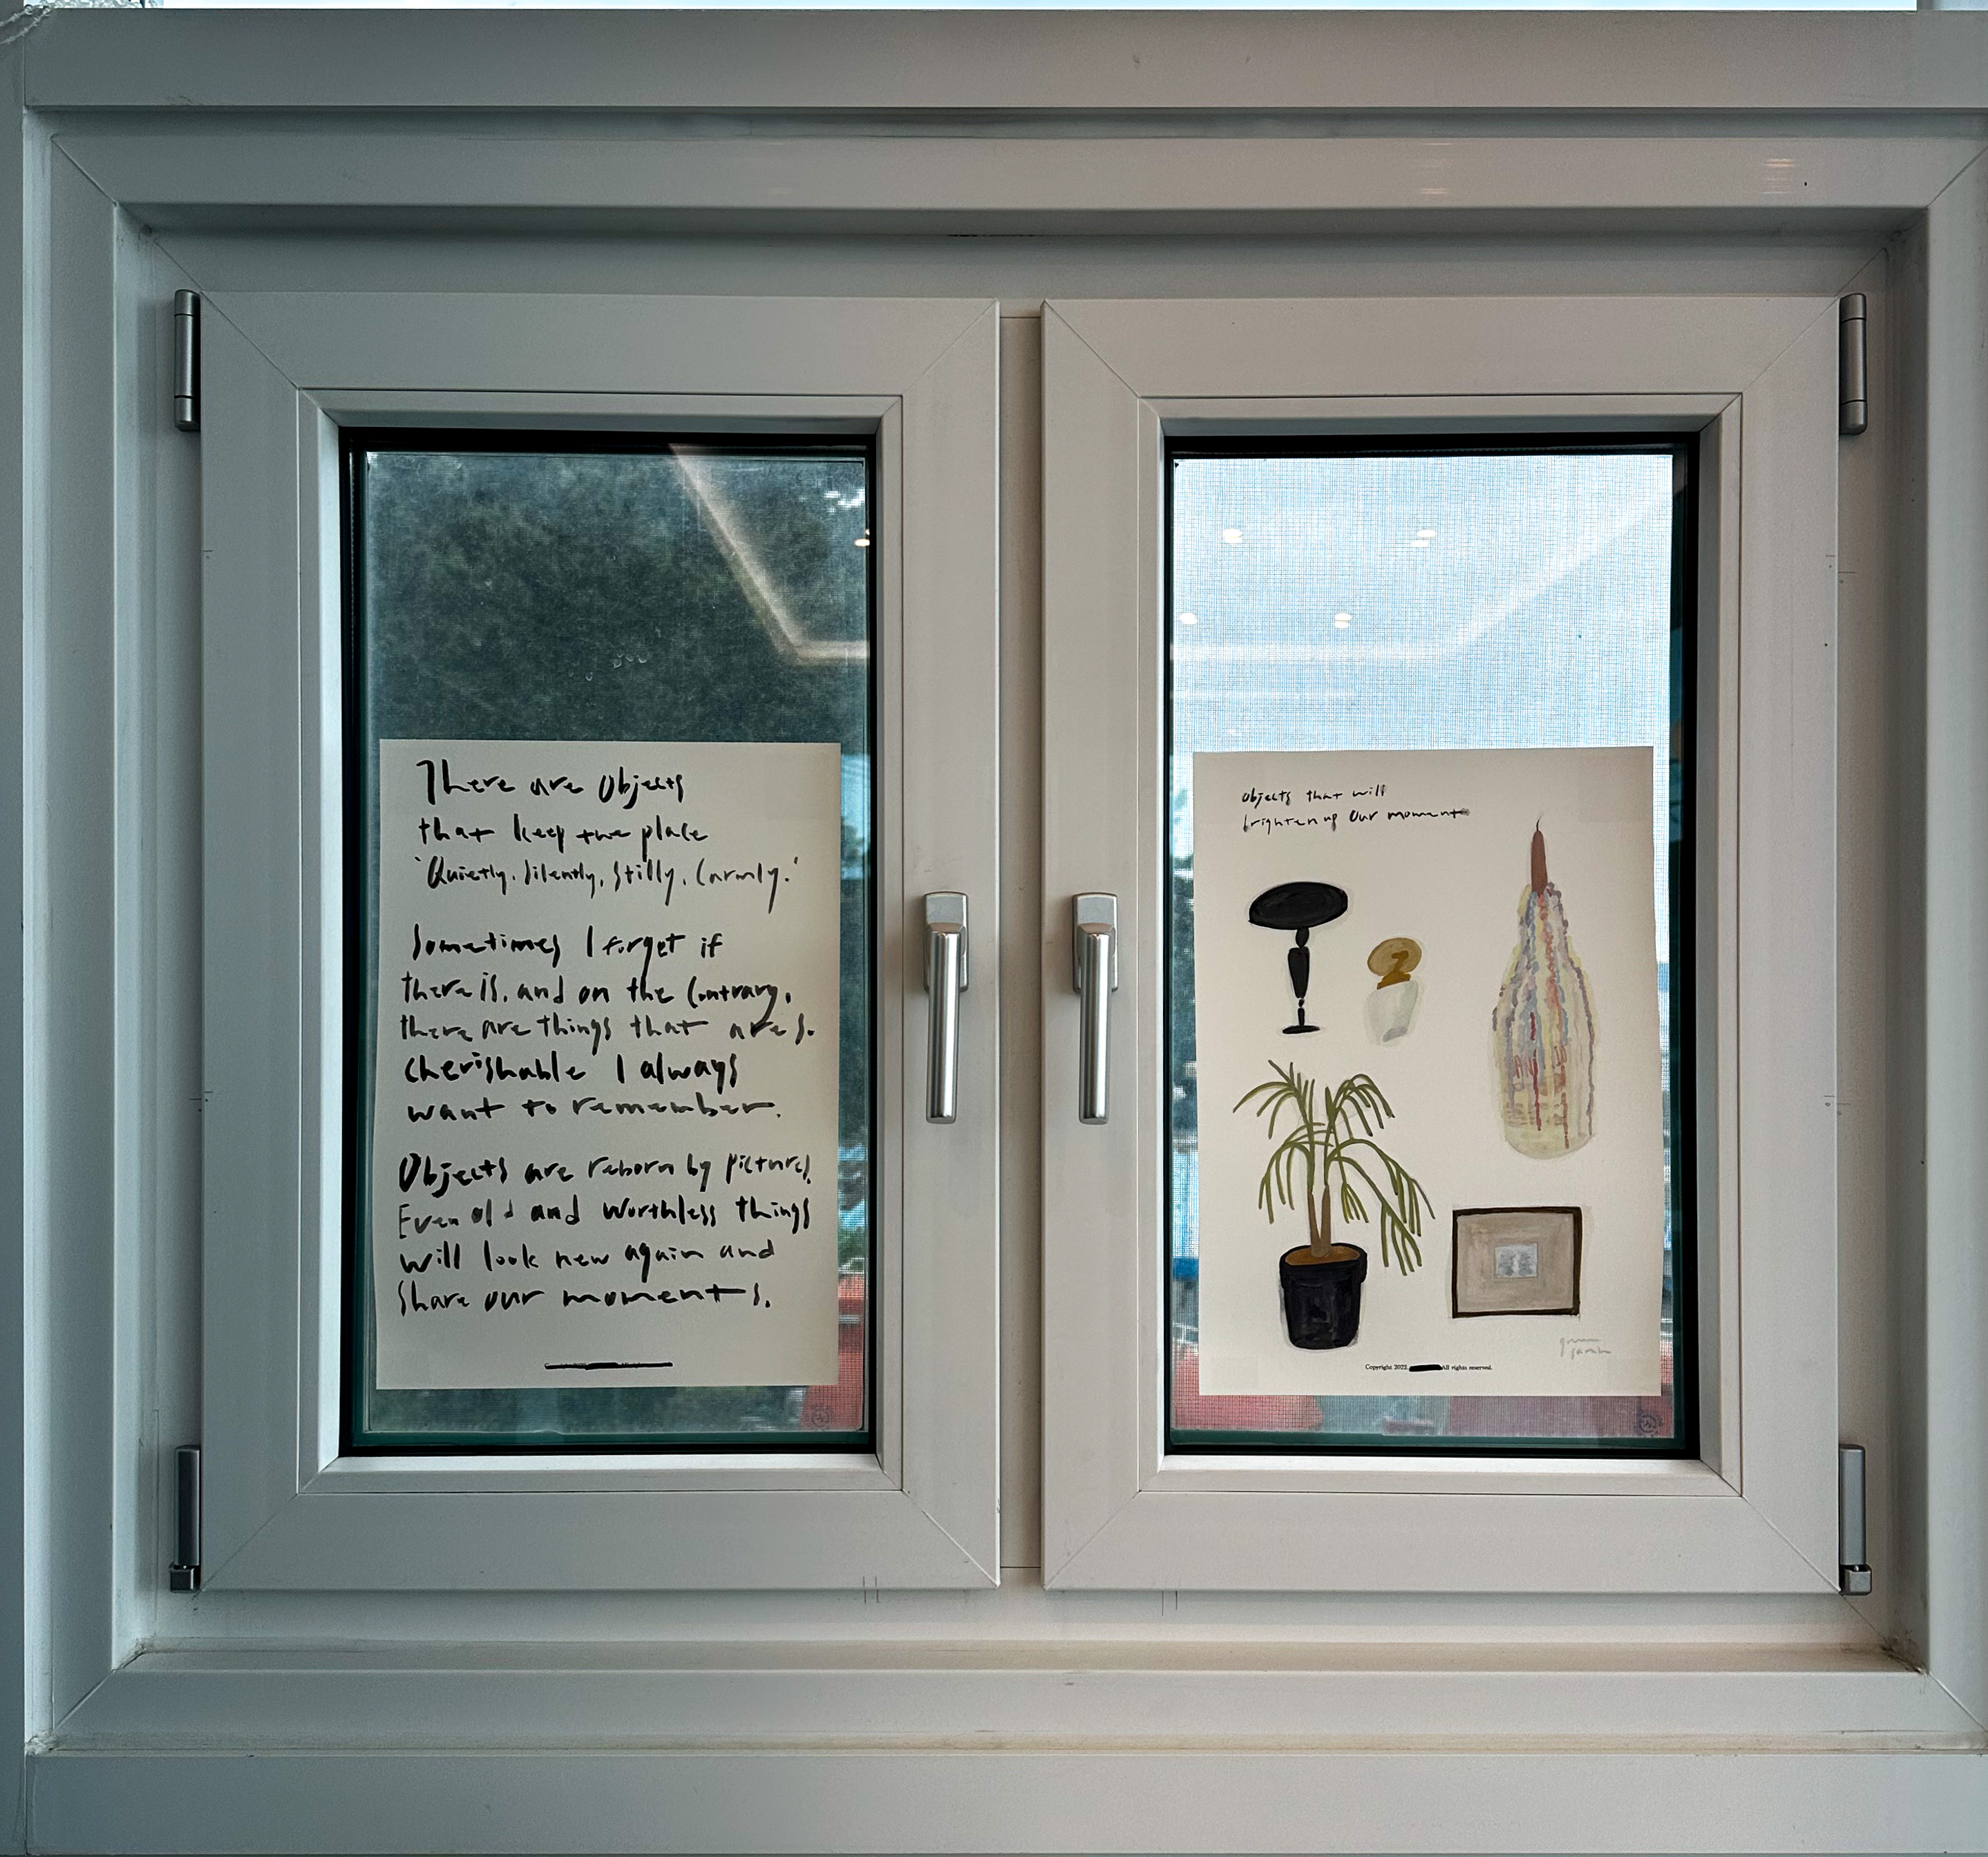 There are Objects
that keep the place
'Quietly, Silently, Stilly, Carmly.'
Sometimes I forget if
there is, and on the Contrary,
there are things that are s.
cherishable I always
want to remember.
Objects are reborn by pictures.
Even old and worthless things
will look new again and
Share our moments.
Objects that will
brighten up Our moment
Copyright 2022. All rights reserved.